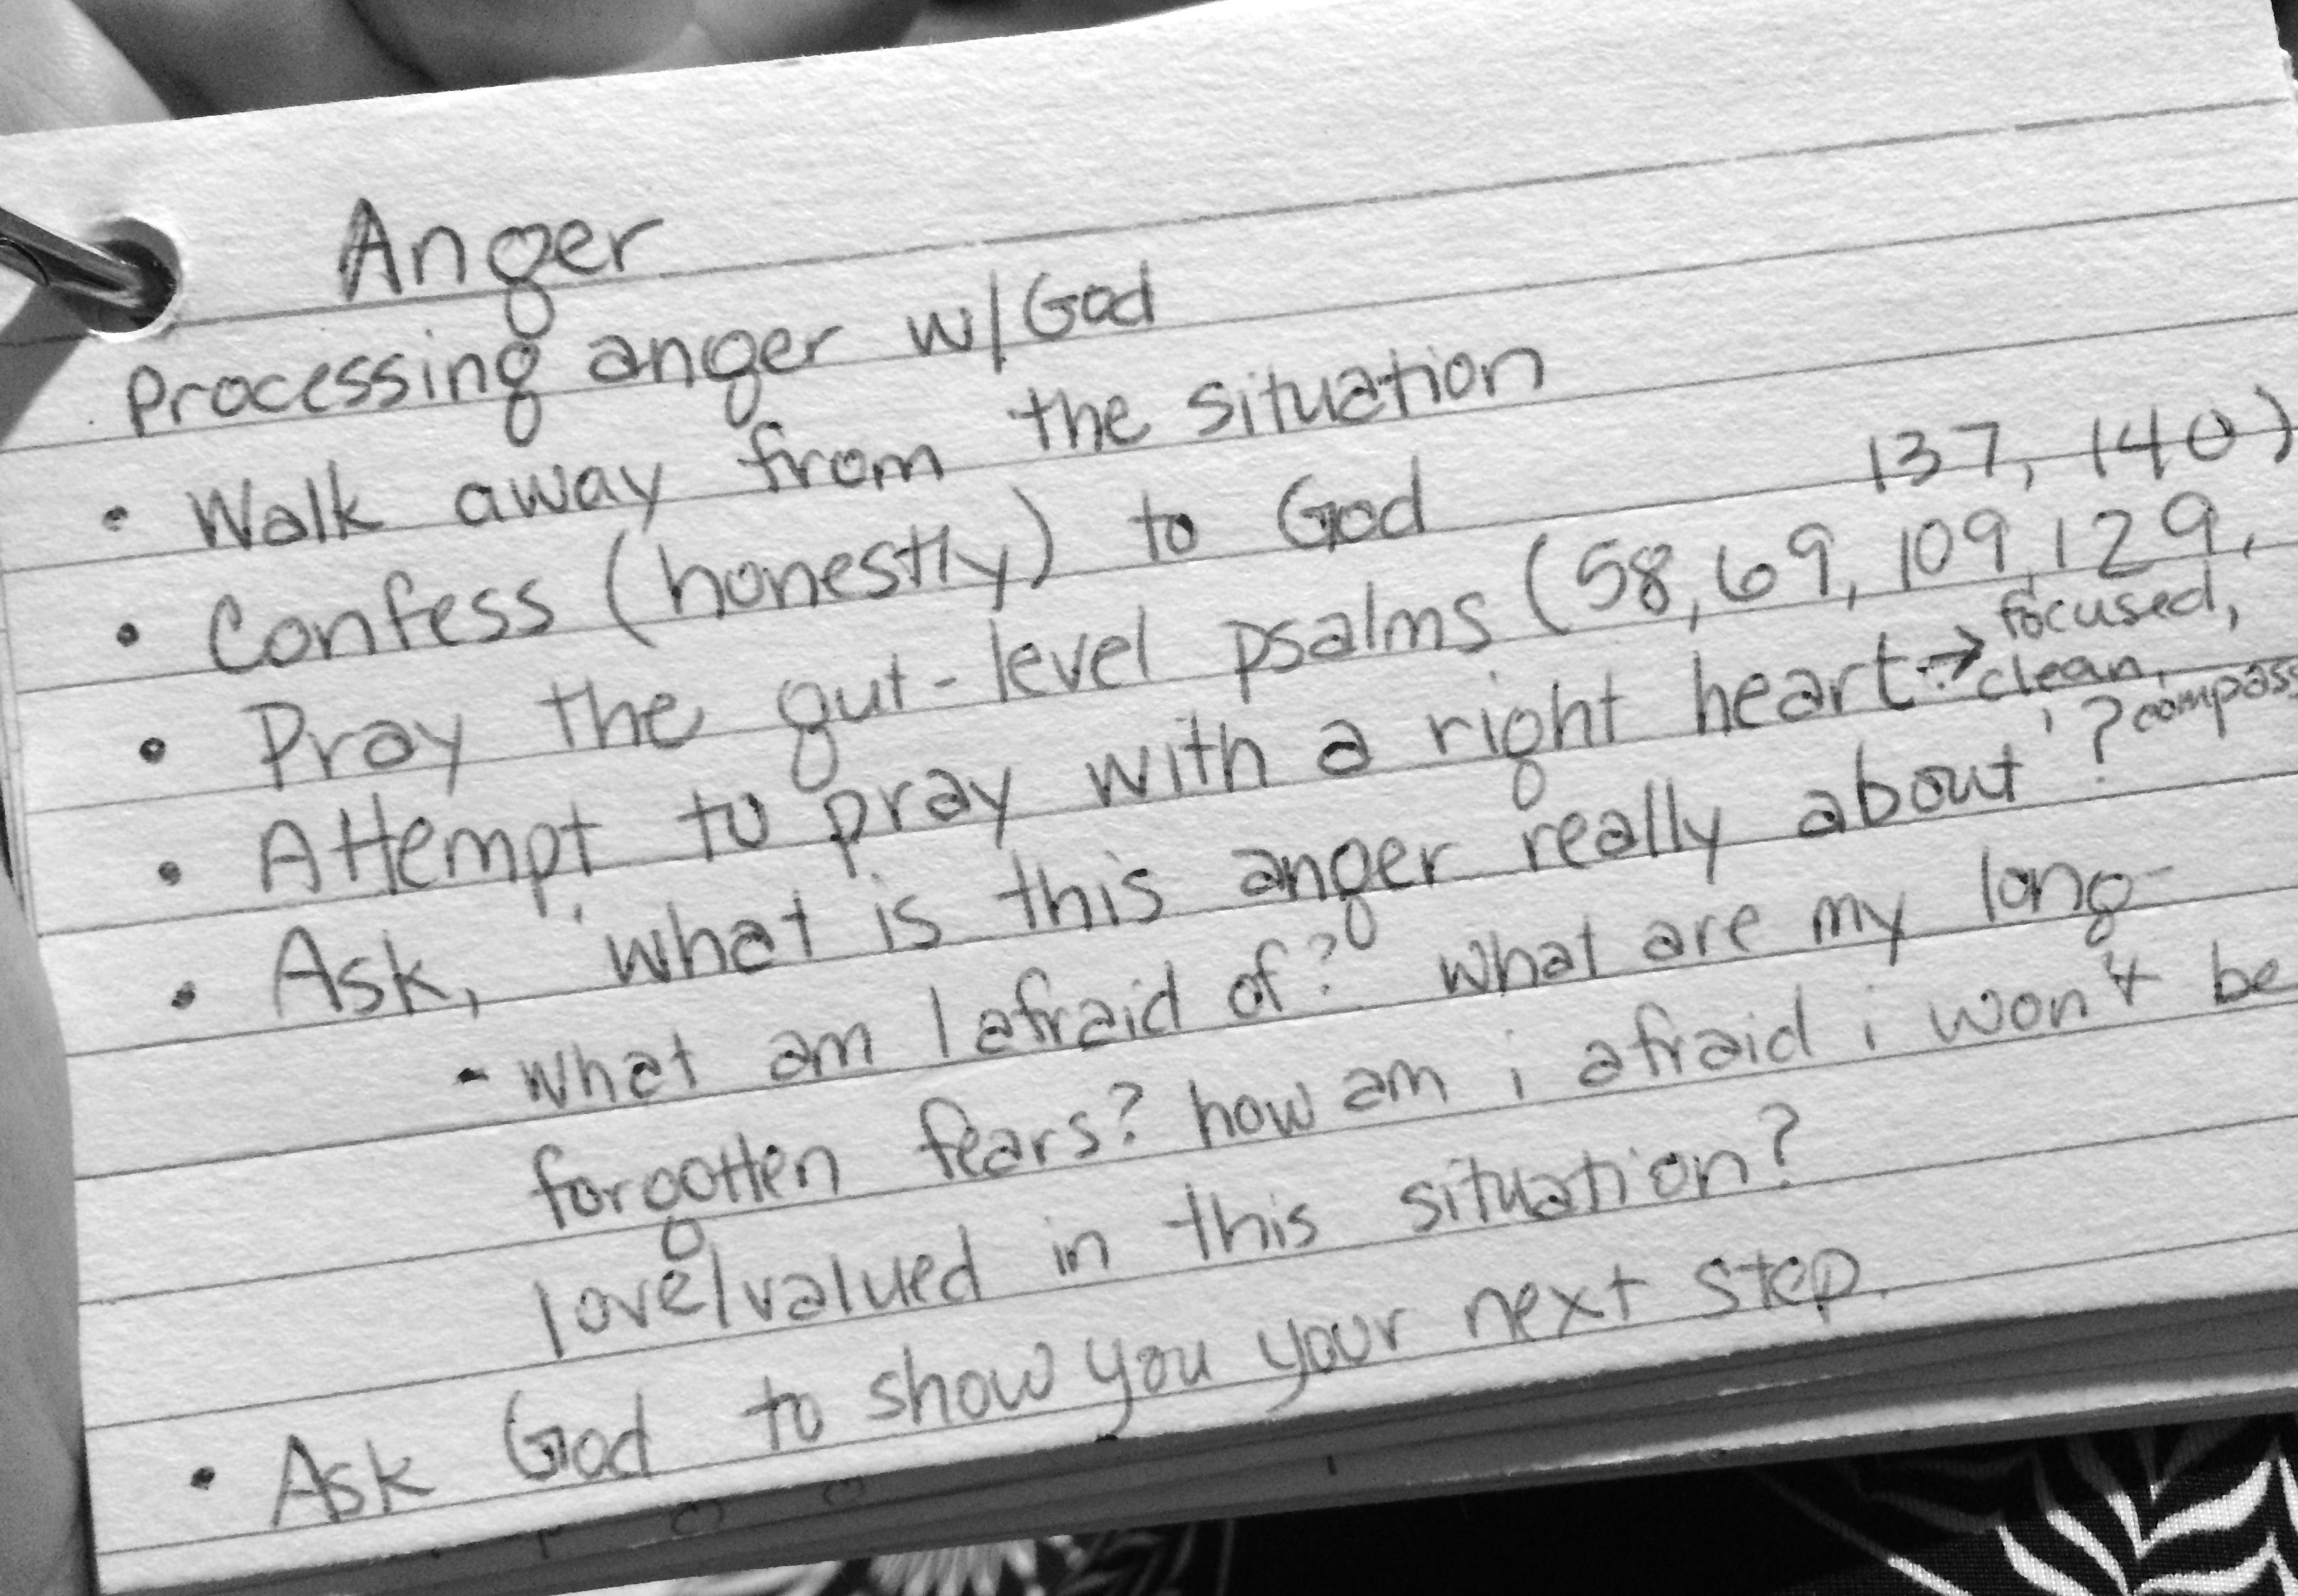 Anger
Processing anger w/God
• Walk away from the situation
• Confess (honestly) to God
• Pray the gut-level psalms (58, 69, 109, 129,
137, 140)
• Attempt to pray with a right heart → focused,
clean,
compass
• Ask, 'what is this anger really about'?
- What am I afraid of? What are my long-
forgotten fears? how am i afraid i won't be
love/valued in this situation?
• Ask God to show you your next step.